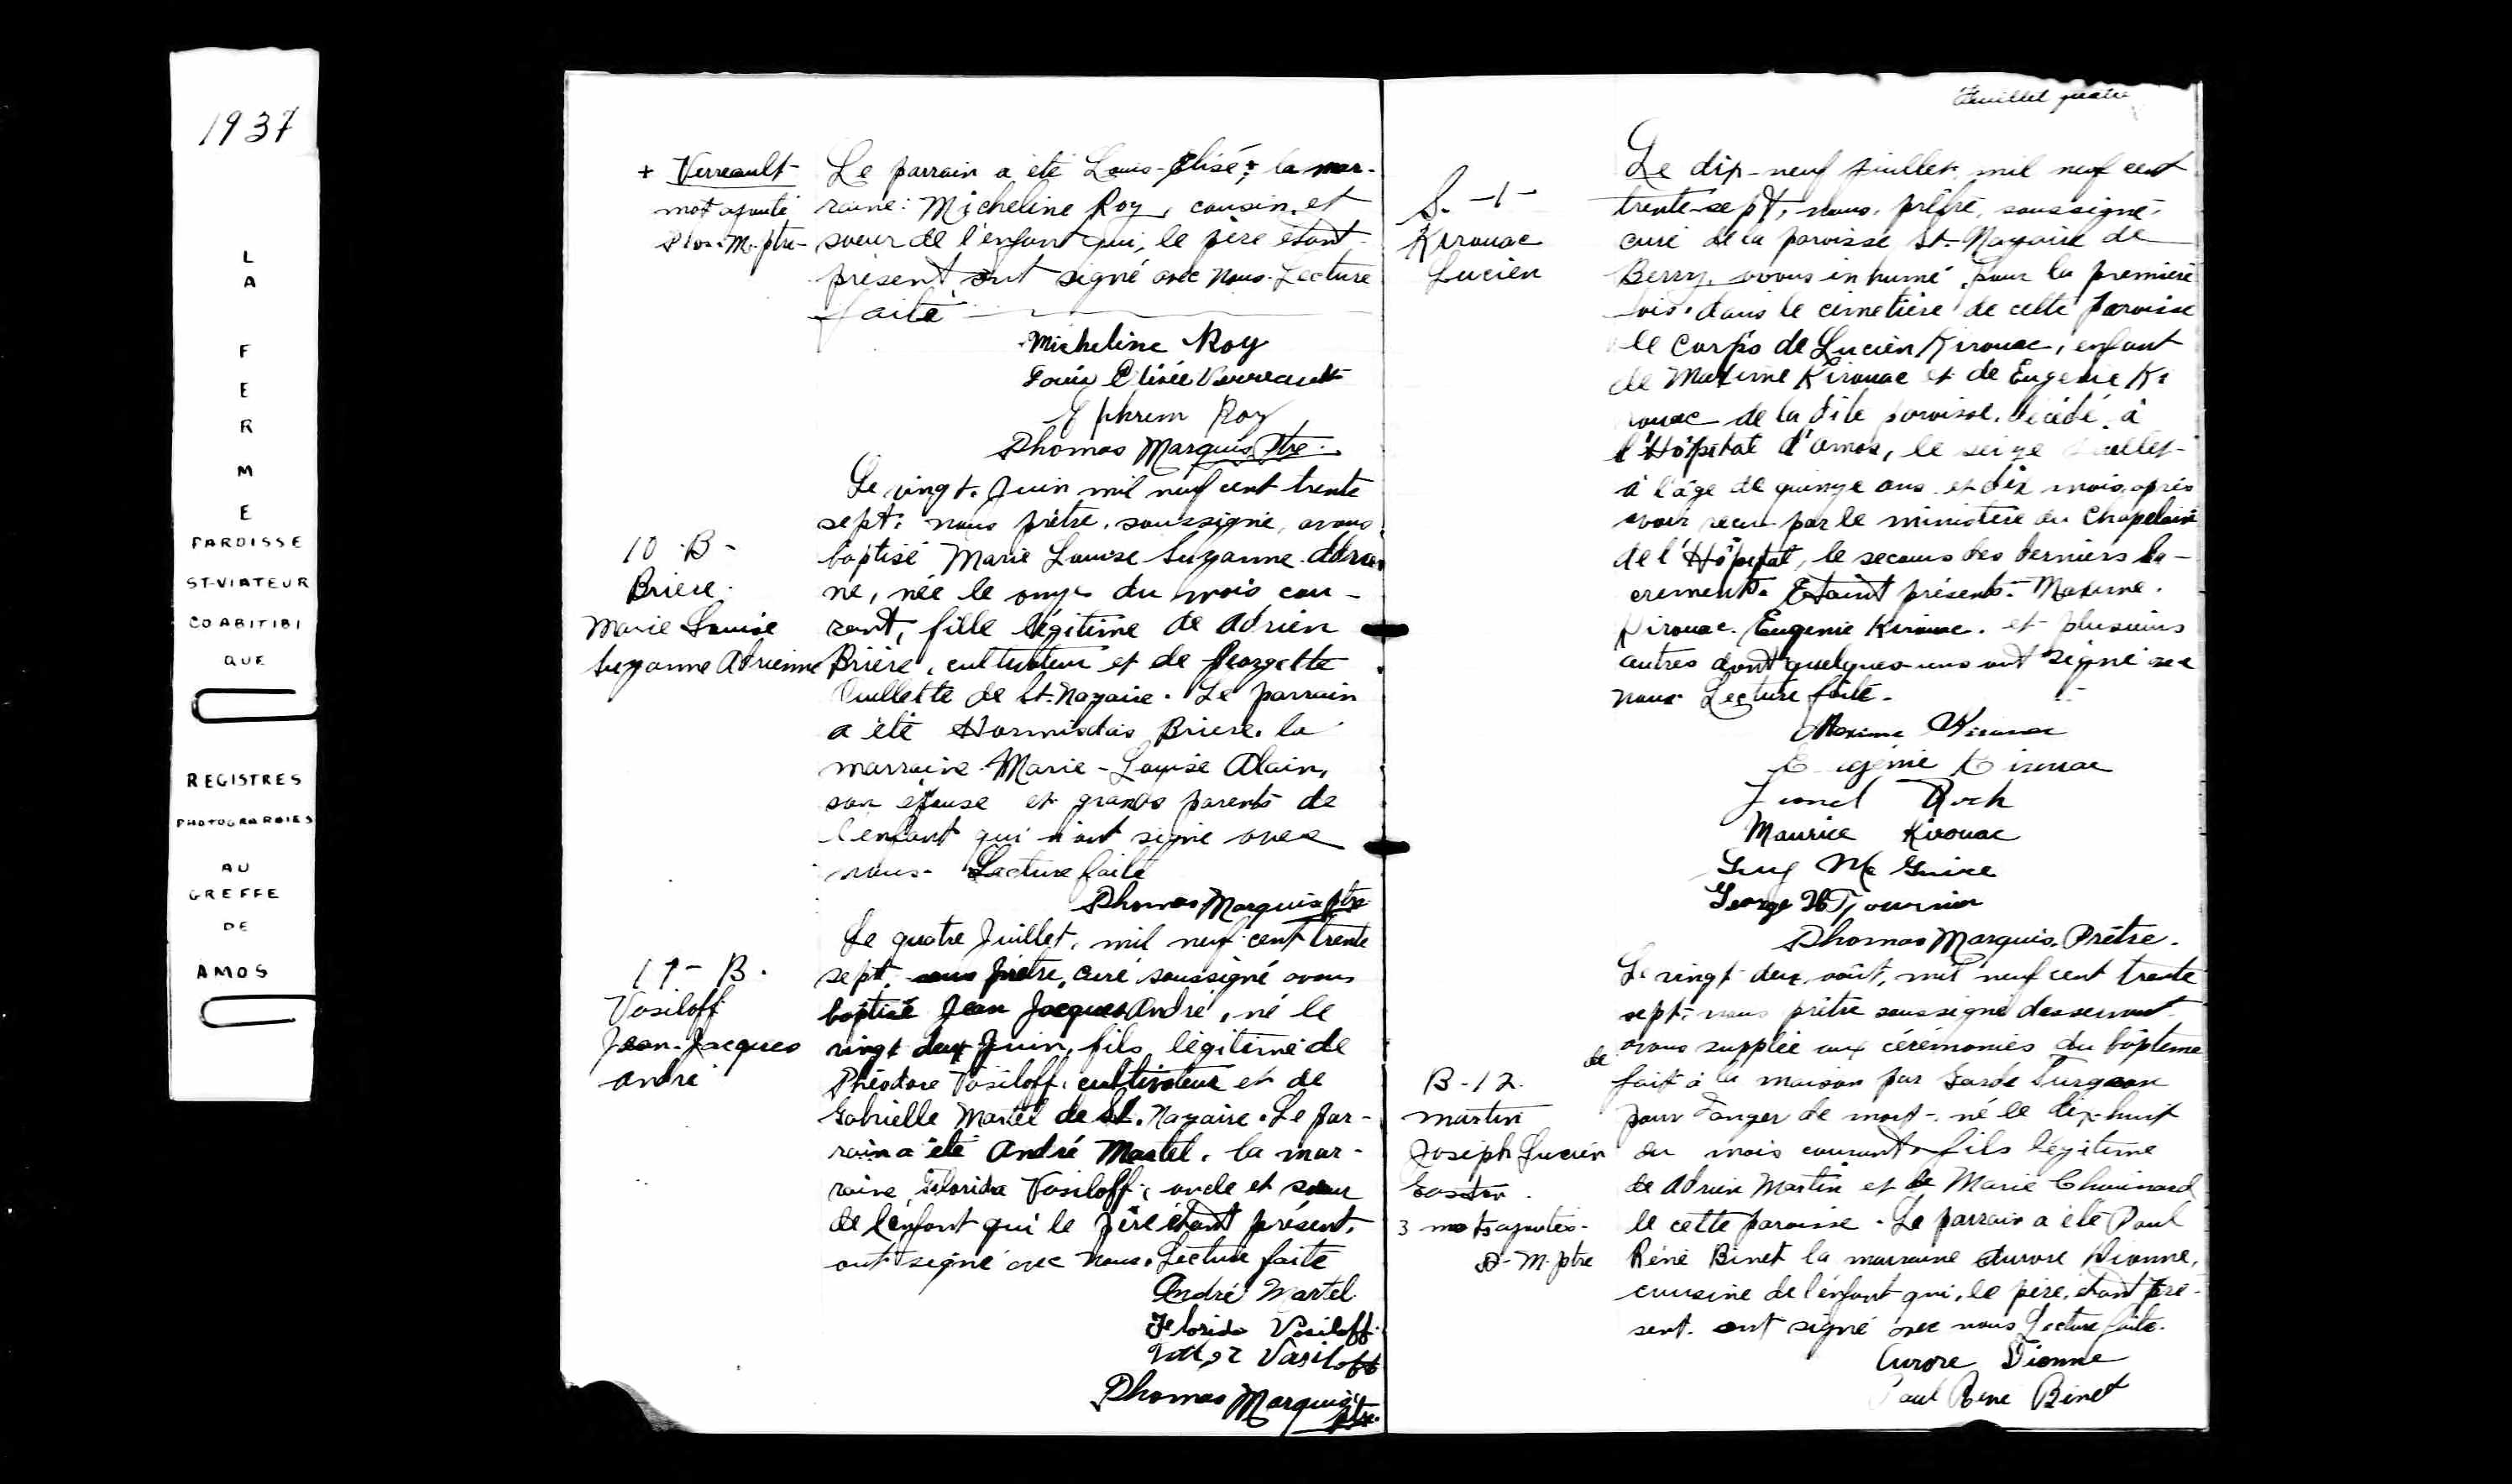 1937
LA
FERME
PAROISSE
ST-VIATEUR
CO ABITIBI
QUE
REGISTRES
PHOTOGRAPHIES
AU
GREFFE
DE
AMOS
+ Verreault
mot ajouté
Thos. M. ptre
Le parrain a été Louis-Elisé + la mar-
raine: Micheline Roy, cousin et
soeur de l'enfant qui, le père étant
présent ont signé avec nous. Lecture
faite
Micheline Roy
Louis Elisée Verreault
Ephrem Roy
Thomas Marquis Ptre.
10 - B -
Briere
Marie Louise
Suzanne Adrienne
Le vingt. Juin mil neuf cent trente
sept: nous prêtre, soussigné, avons
baptisé Marie Louise Suzanne Adrien
ne, née le onze du mois cou-
rant, fille légitime de Adrien
Brière, cultivateur et de Georgette
Ouillette de St-Nazaire. Le parrain
a été Hormisdas Briere. la
marraine Marie-Louise Alain,
son épouse et grands parents de
l'enfant qui n'ont signé avec
nous. Lecture faite
Thomas Marquis ptre
11 - B.
Vasiloff
Jean-Jacques
André
Le quatre Juillet, mil neuf cent trente
sept, nous prêtre, curé soussigné avons
baptisé Jean Jacques André, né le
vingt deux Juin, fils légitime de
Théodore Vasiloff, cultivateur et de
Gabrielle Martel de St. Nazaire. Le par-
rain a été André Martel. la mar-
raine, Florida Vasiloff, oncle et soeur
de l'enfant qui le père étant présent,
ont signé avec nous. Lecture faite
André Martel
Florida Vasiloff
Vasiloff
Thomas Marquis
ptre.
Feuillet quatre
S. -1-
Kirouac
Lucien
Le dix-neuf juillet, mil neuf cent
trente-sept, nous, prêtre, soussigné,
curé de la paroisse St. Nazaire de
Berry, avons inhumé, pour la première
fois, dans le cimetière de cette Paroisse
le corps de Lucien Kirouac, enfant
de Maxime Kirouac et de Eugenie Ki
rouac de la dite paroisse, décédé à
l'Hôpital d'Amos, le seize Juillet
à l'âge de quinze ans et dix mois, après
avoir reçu par le ministère du Chapelain
de l'Hôpital, le secours des derniers Sa-
crements. Etaient présents: Maxime
Kirouac, Eugenie Kirouac, et plusieurs
autres dont quelques-uns ont signé avec
nous. Lecture faite.
Maxime Kirouac
Eugénie Kirouac
Lionel Roch
Maurice Kirouac
Guy Mc Guire
George H Fournier
Thomas Marquis. Prêtre.
B-12.
Martin
Joseph Lucien
Gaston.
3 mots ajoutés.
T. M. ptre
Le vingt deux août, mil neuf cent trente
sept, nous prêtre soussigné desservant
avons supplée aux cérémonies du baptême
de
fait à la maison par Garde Turgeon
pour danger de mort, né le dix-huit
du mois courant, fils légitime
de Adrien Martin et de Marie Chouinard
de cette paroisse. Le parrain a été Paul
Réné Binet la marraine Aurore Dionne,
cousine de l'enfant qui, le père, étant pré-
sent, ont signé avec nous Lecture faite.
Aurore Dionne
Paul Rene Binet